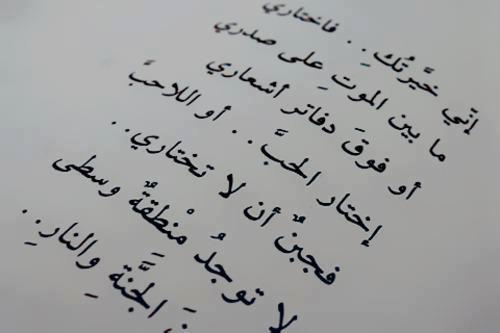 إنّي خيَّرتُكِ.. فاختاري
ما بين الموتِ على صدري
أو فوقَ دفاتر أشعاري
إختار الحبَّ.. أو اللاحبَّ
فجبنٌ أن لا تختاري..
لا توجدُ منْطقةٌ وسطى
الجنَّةِ والنارِ..